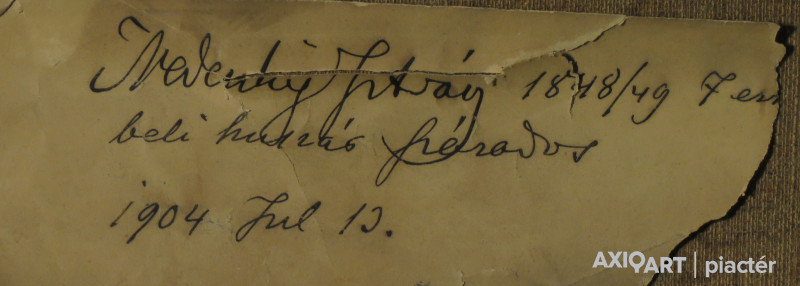 Nedeczky István 1848/49 7 es
beli huszár százados
1904 Jul 13.
AXIOART | piactér